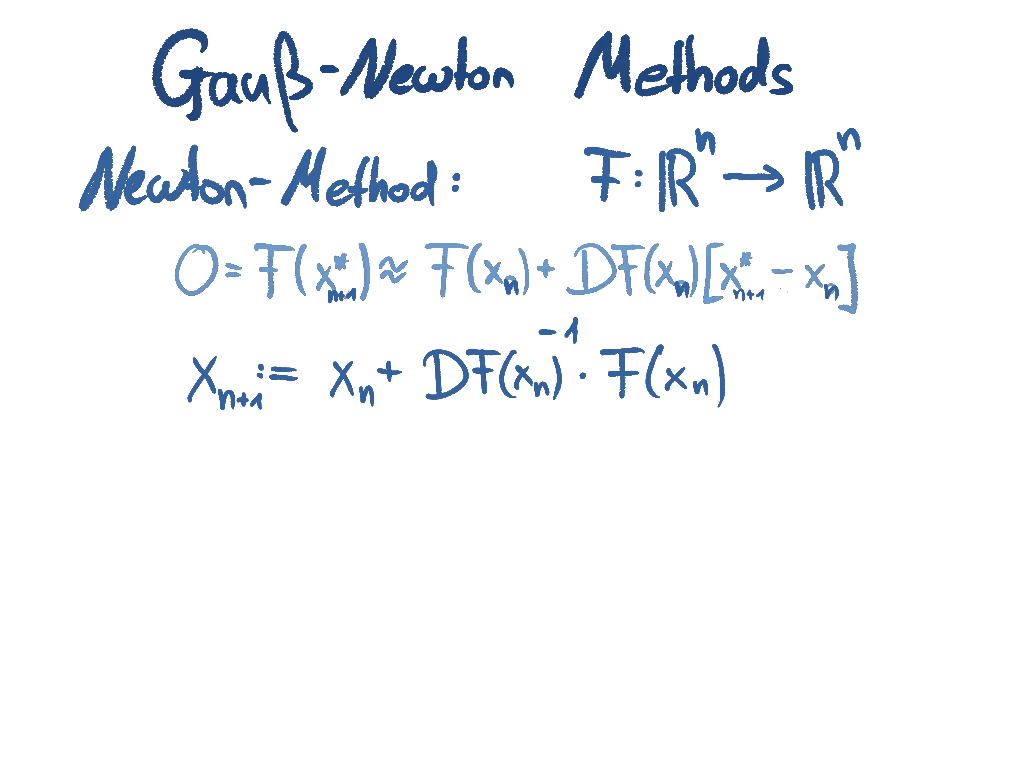 Gauß-Newton Methods
Newton-Method: F: ℝⁿ → ℝⁿ
0 = F(x*ₙ₊₁) ≈ F(xₙ) + DF(xₙ)[x*ₙ₊₁ - xₙ]
xₙ₊₁ := xₙ + DF(xₙ)⁻¹ · F(xₙ)